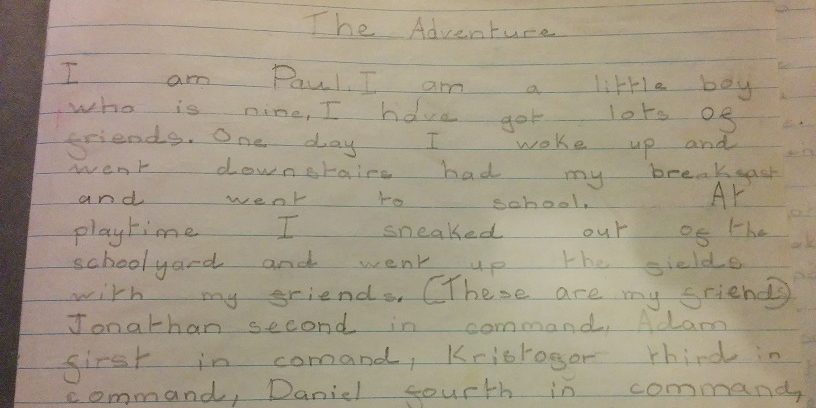 The Adventure
I am Paul. I am a little boy
who is nine, I have got lots of
friends. One day I woke up and
went downstairs had my breakfast
and went to school. At
playtime I sneaked out of the
schoolyard and went up the fields
with my friends. (These are my friends)
Jonathan second in command, Adam
first in comand, Kristofor third in
command, Daniel fourth in command,